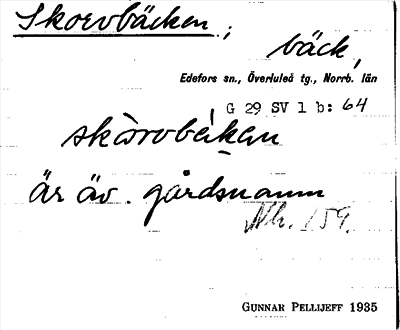 Skorvbäcken;
bäck,
Edefors sn., Överluleå tg., Norrb. län
G 29 SV 1 b: 64
skàrvbékan
är äv. gårdsnamn
Nb. 159.
GUNNAR PELLIJEFF 1935